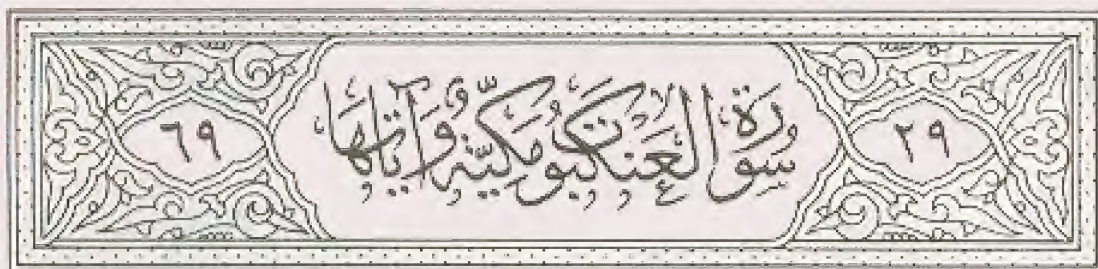 ٢٩ سُورَةُ الْعَنْكَبُوتِ مَكِّيَّةٌ وَآيَاتُهَا ٦٩